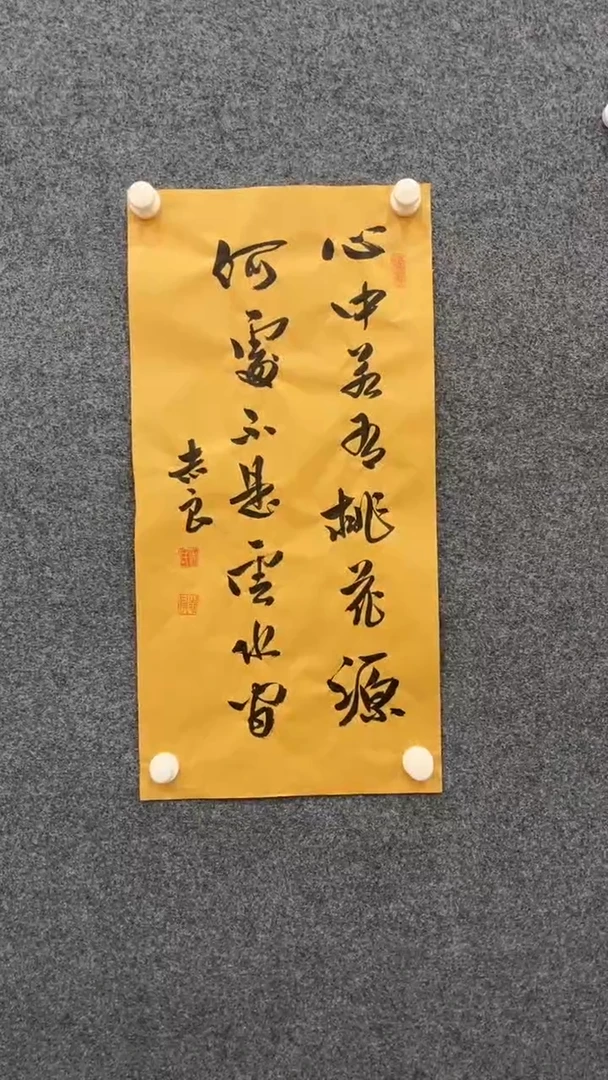 心中若有桃花源
何處不是雲水間
志良